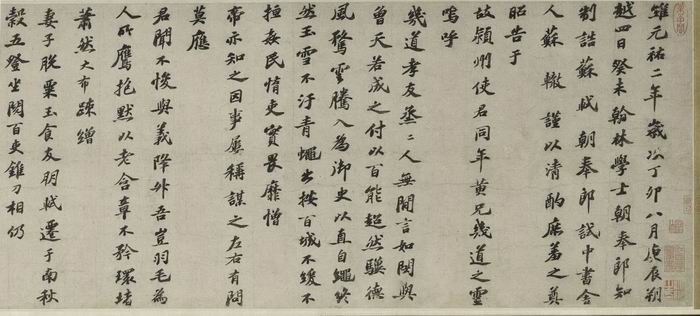 維元祐二年歲次丁卯八月庚辰朔
越四日癸未翰林學士朝奉郎知
制誥蘇軾朝奉郎試中書舍
人蘇轍謹以清酌庶羞之奠
昭告于
故潁州使君同年黃兄幾道之靈
嗚呼
幾道孝友烝二人無間言如閔與
曾天若成之付以百能超然驥德
風騖雲騰入為御史以直自繩終
然玉雪不汙青蠅出按百城不緩不
搄姦民惰吏實畏靡憎
帝亦知之因事屢稱謀之左右有問
莫應
君聞不悛與義降升吾豈羽毛為
人所鷹抱默以老含章不矜環堵
蕭然大布疎繒
妻子脫粟玉食友朋軾遷于南秋
穀五登坐閱百吏錐刀相仍